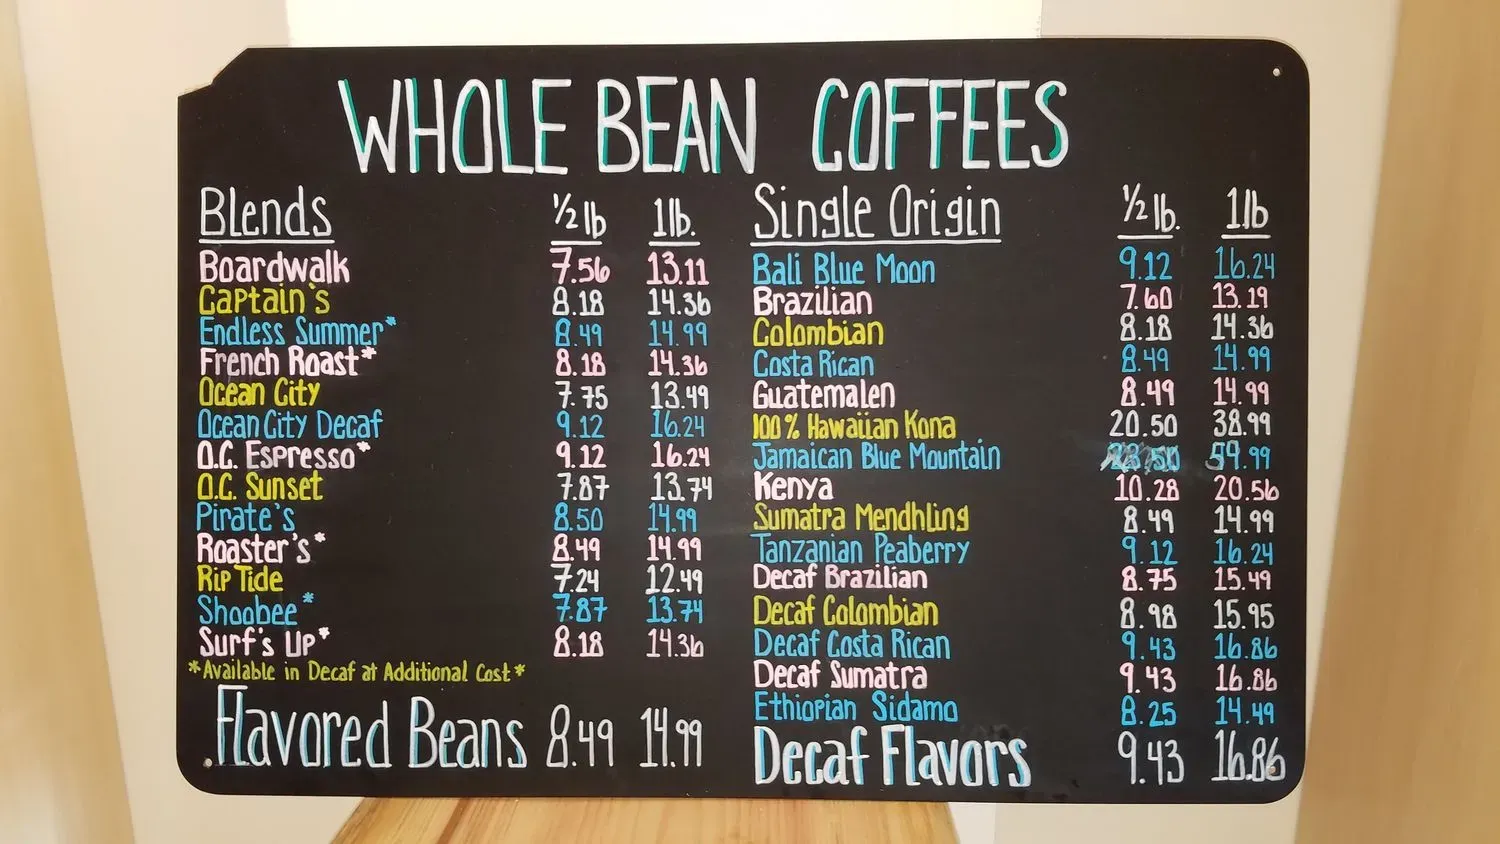 WHOLE BEAN COFFEES
Blends ½ lb 1lb.
Boardwalk 7.56 13.11
Captain's 8.18 14.36
Endless Summer* 8.49 14.99
French Roast* 8.18 14.36
Ocean City 7.75 13.49
Ocean City Decaf 9.12 16.24
O.C. Espresso* 9.12 16.24
O.C. Sunset 7.87 13.74
Pirate's 8.50 14.99
Roaster's* 8.49 14.99
Rip Tide 7.24 12.49
Shoobee* 7.87 13.74
Surf's Up* 8.18 14.36
*Available in Decaf at Additional Cost*
Flavored Beans 8.49 14.99
Single Origin ½ lb. 1lb
Bali Blue Moon 9.12 16.24
Brazilian 7.60 13.19
Colombian 8.18 14.36
Costa Rican 8.49 14.99
Guatemalen 8.49 14.99
100% Hawaiian Kona 20.50 38.99
Jamaican Blue Mountain 59.99
Kenya 10.28 20.56
Sumatra Mendhling 8.49 14.99
Tanzanian Peaberry 9.12 16.24
Decaf Brazilian 8.75 15.49
Decaf Colombian 8.98 15.95
Decaf Costa Rican 9.43 16.86
Decaf Sumatra 9.43 16.86
Ethiopian Sidamo 8.25 14.49
Decaf Flavors 9.43 16.86